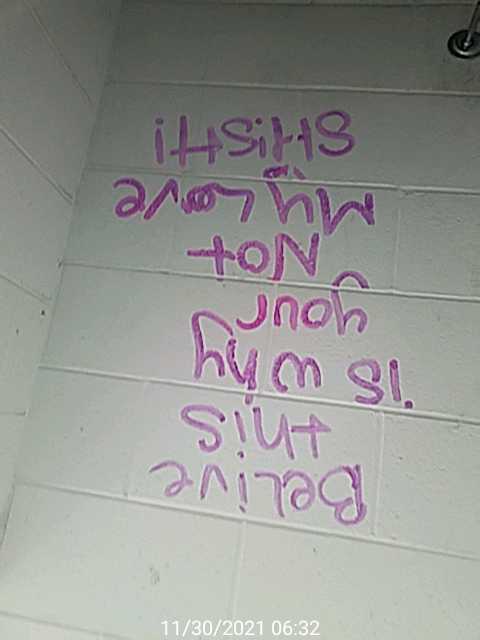 Belive
this
is why
your
Not
My Love
SH!SH!
11/30/2021 06:32